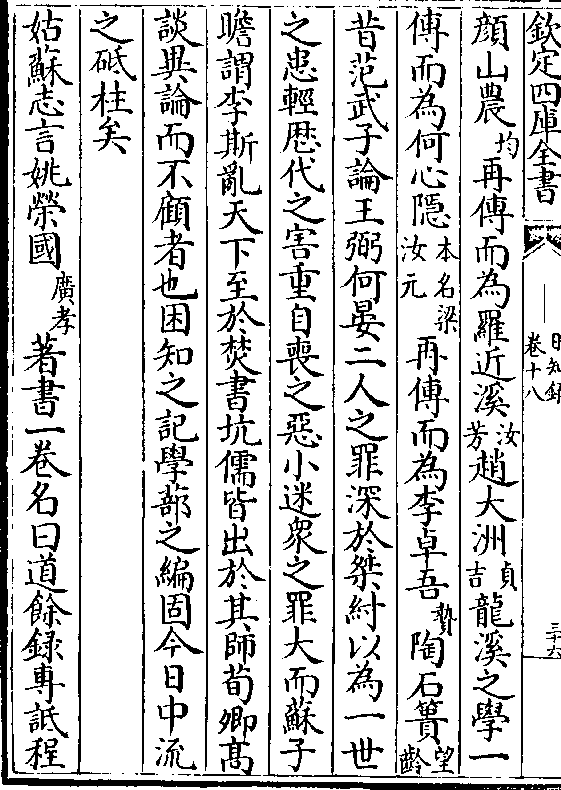 欽定四庫全書
日知錄
卷十八
三十六
顔山農均再傳而為羅近溪汝芳趙大洲貞吉龍溪之學一
傳而為何心隱本名梁汝元再傳而為李卓吾贄陶石簣望齡
昔范武子論王弼何晏二人之罪深於桀紂以為一世
之患輕歴代之害重自喪之惡小迷衆之罪大而蘇子
瞻謂李斯亂天下至於焚書坑儒皆出於其師荀卿髙
談異論而不顧者也困知之記學蔀之編固今日中流
之砥柱矣
姑蘇志言姚榮國廣孝著書一卷名曰道餘録專詆程